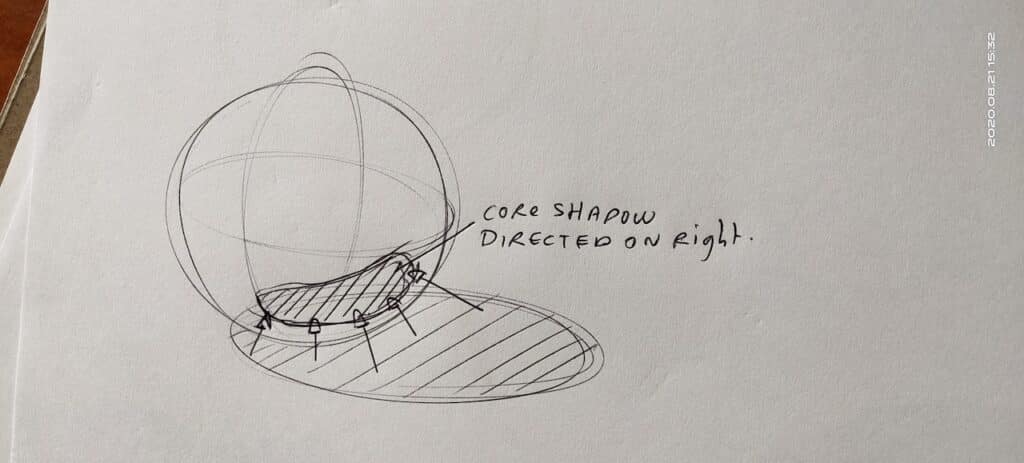 CORE SHADOW
DIRECTED ON Right.
2020.08.21 15:32